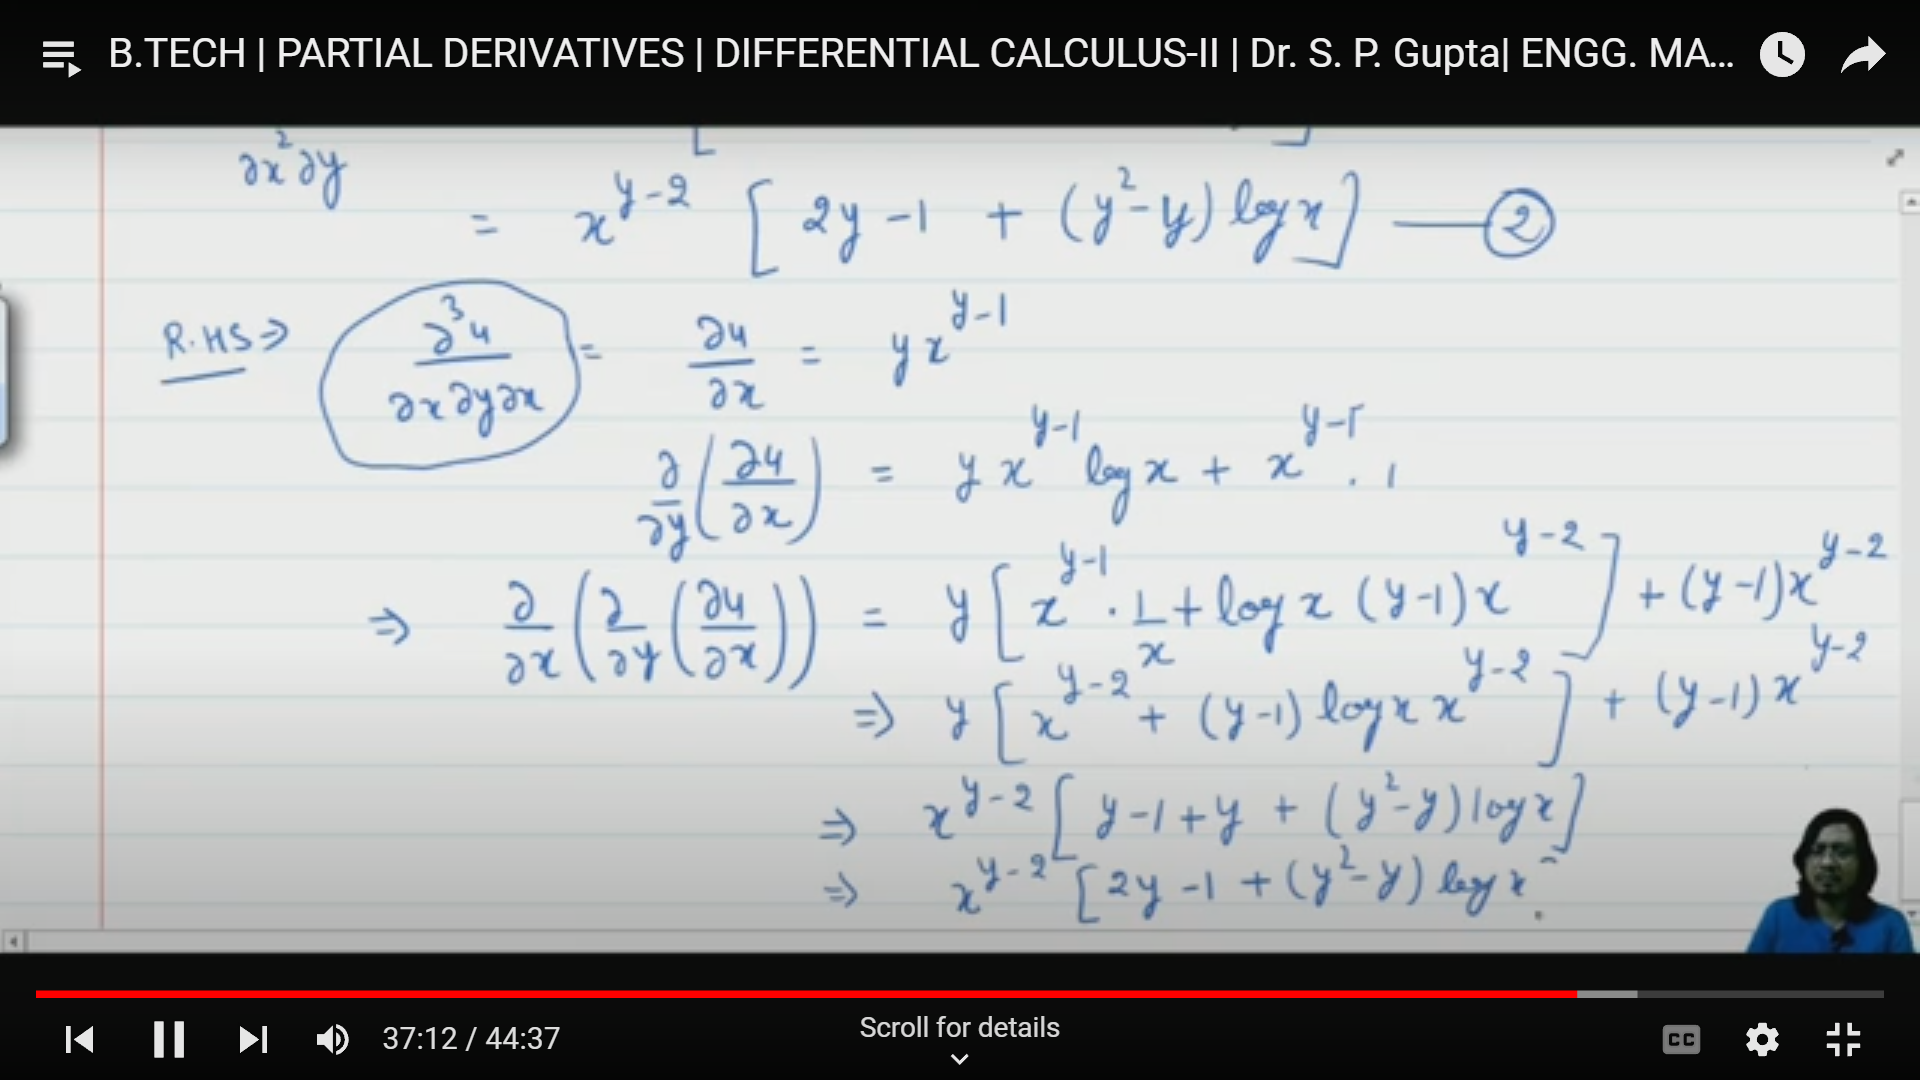 B.TECH | PARTIAL DERIVATIVES | DIFFERENTIAL CALCULUS-II | Dr. S. P. Gupta| ENGG. MA...
∂x²∂y
= x^(y-2) [ 2y -1 + (y²-y) log x ] —— ②
R.HS ⇒ ∂³u/∂x∂y∂x = ∂u/∂x = y x^(y-1)
∂/∂y (∂u/∂x) = y x^(y-1) log x + x^(y-1) . 1
⇒ ∂/∂x (∂/∂y (∂u/∂x)) = y [ x^(y-1) . 1/x + log x (y-1) x^(y-2) ] + (y-1) x^(y-2)
⇒ y [ x^(y-2) + (y-1) log x x^(y-2) ] + (y-1) x^(y-2)
⇒ x^(y-2) [ y-1+y + (y²-y) log x ]
⇒ x^(y-2) [ 2y -1 + (y²-y) log x
37:12 / 44:37
Scroll for details
CC